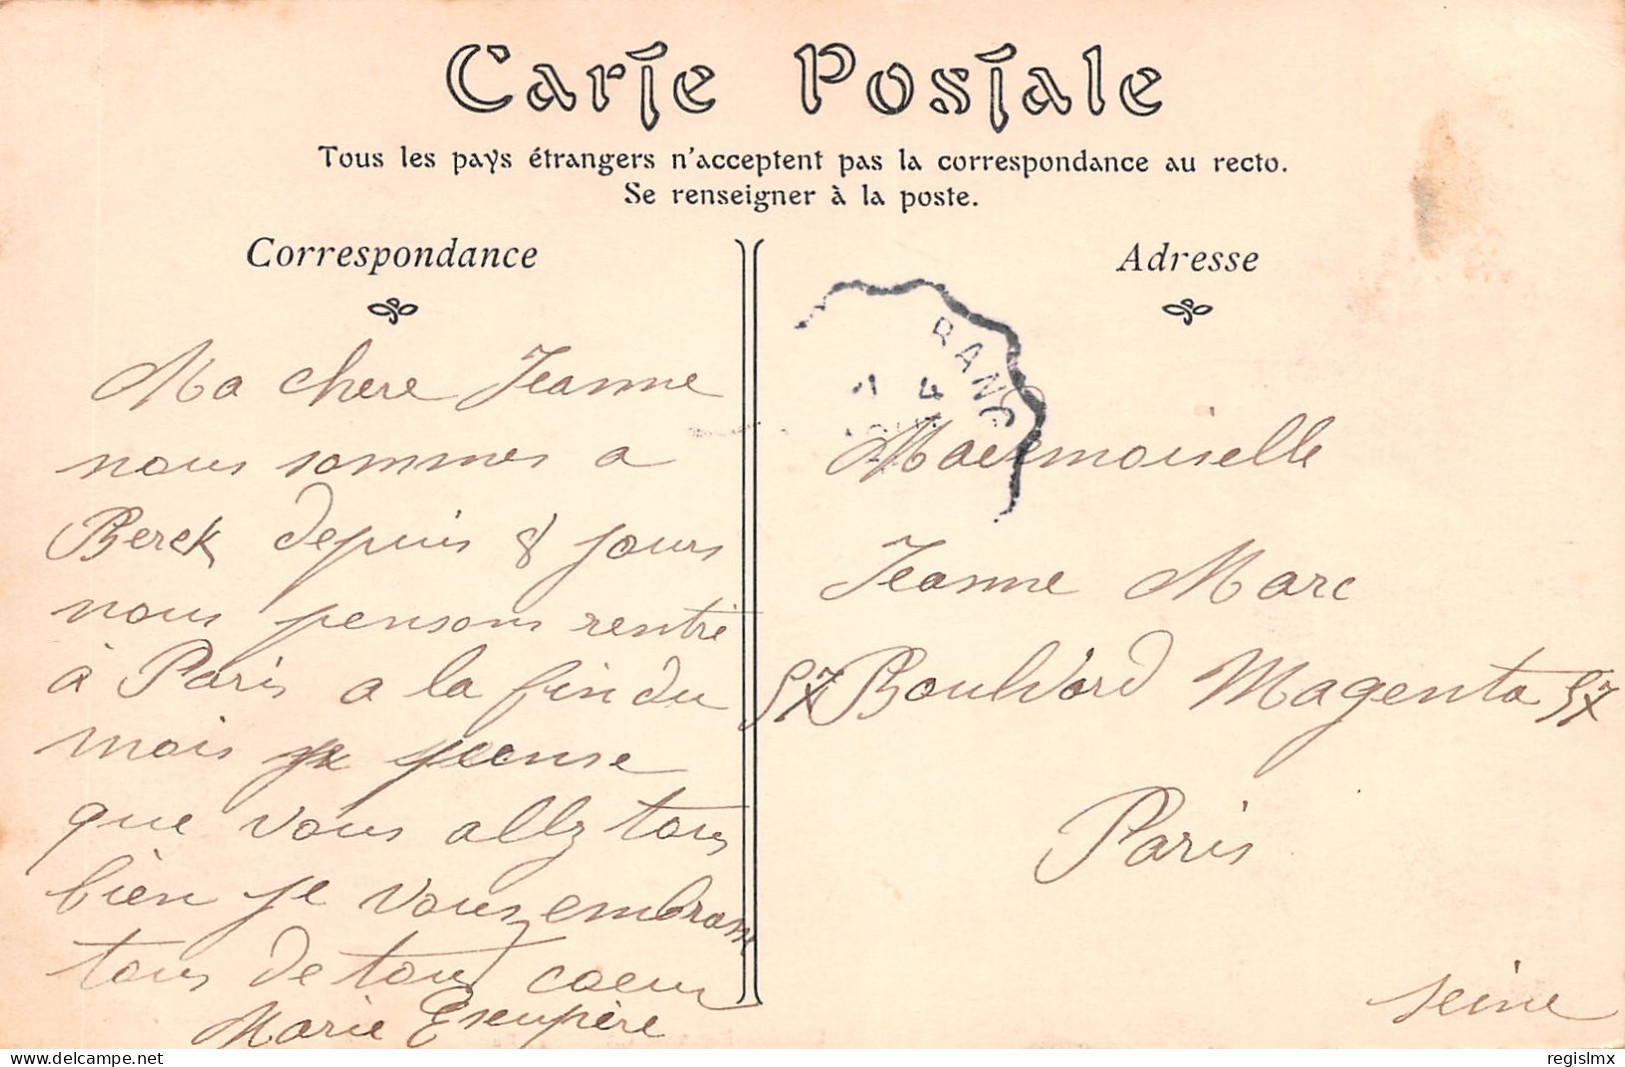 Carte Postale
Tous les pays étrangers n'acceptent pas la correspondance au recto.
Se renseigner à la poste.
Correspondance
Ma chere Jeanne
nous sommes a
Berck depuis 8 jours
nous pensons rentré
à Paris a la fin du
mois je pense
que vous allz tous
bien je vous embrasse
tous de tout coeur
Marie
Adresse
RANG
4
Mademoiselle
Jeanne Marc
57 Boulvard Magenta 57
Paris
Seine
delcampe.net
regislmx